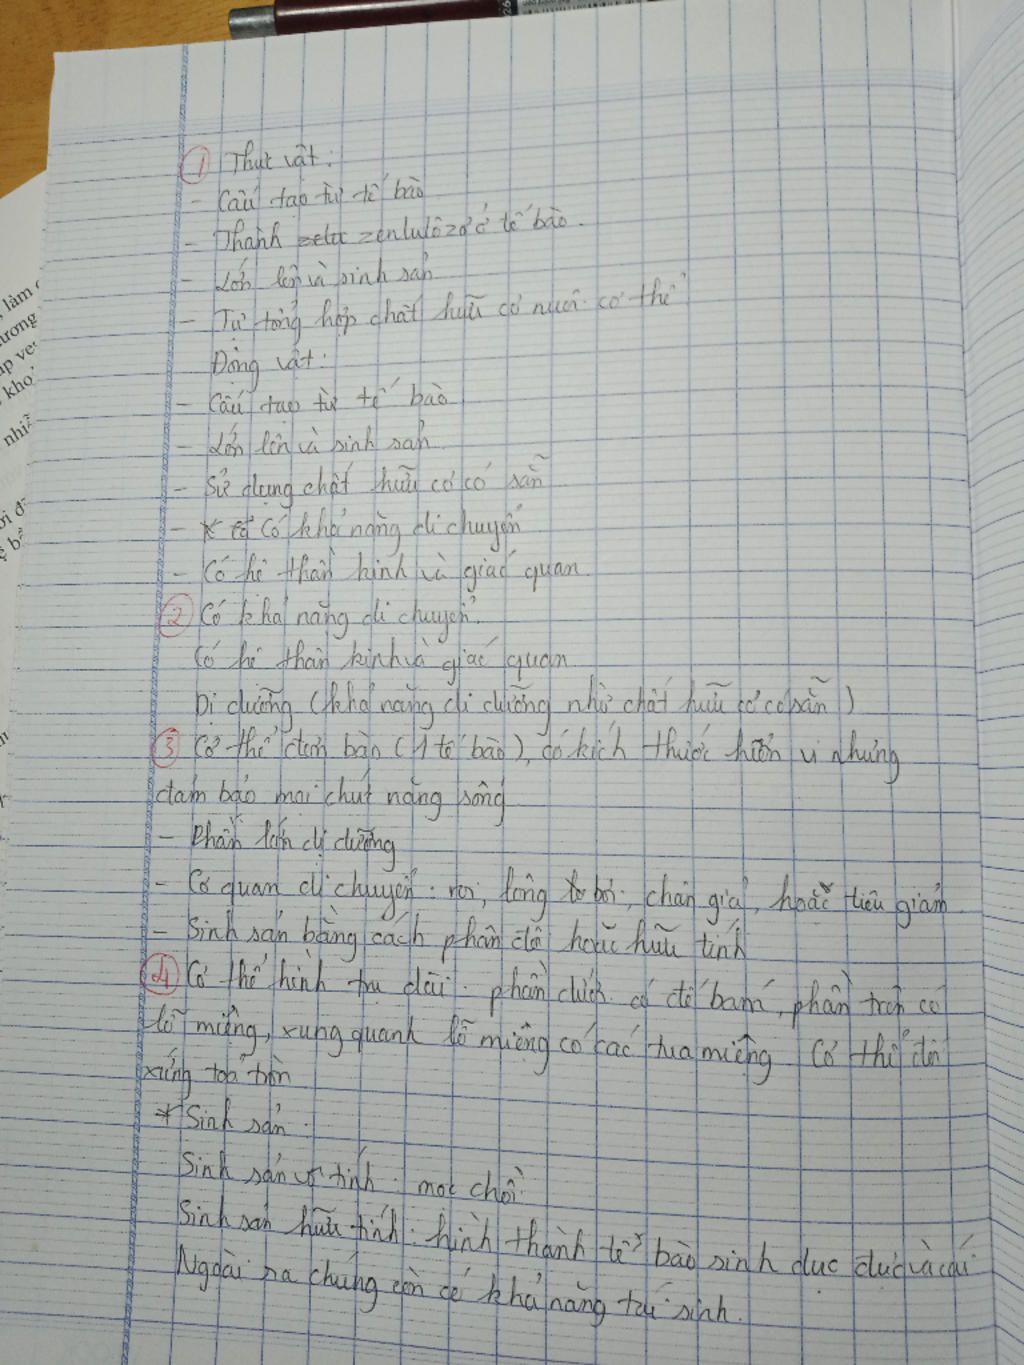 ① Thực vật:
- Cấu tạo từ tế bào
- Thành zenlulôzơ ở tế bào.
- Lớn lên và sinh sản
- Tự tổng hợp chất hữu cơ nuôi cơ thể
Động vật:
- Cấu tạo từ tế bào
- Lớn lên và sinh sản
- Sử dụng chất hữu cơ có sẵn
- Có khả năng di chuyển
- Có hệ thần kinh và giác quan
② Có khả năng di chuyển.
Có hệ thần kinh và giác quan
Dị dưỡng (khả năng dị dưỡng nhờ chất hữu cơ có sẵn)
③ Cơ thể đơn bào (1 tế bào), có kích thước hiển vi nhưng
đảm bảo mọi chức năng sống
- Phần lớn dị dưỡng
- Cơ quan di chuyển: roi, lông bơi, chân giả, hoặc tiêu giảm
- Sinh sản bằng cách phân đôi hoặc hữu tính
④ Cơ thể hình trụ dài. phần dưới có đế bám, phần trên có
lỗ miệng, xung quanh lỗ miệng có các tua miệng Cơ thể đối
xứng toả tròn
* Sinh sản:
Sinh sản vô tính: mọc chồi
Sinh sản hữu tính: hình thành tế bào sinh dục đực và cái
Ngoài ra chúng còn có khả năng tái sinh.
làm
ương
kho
nhiễ